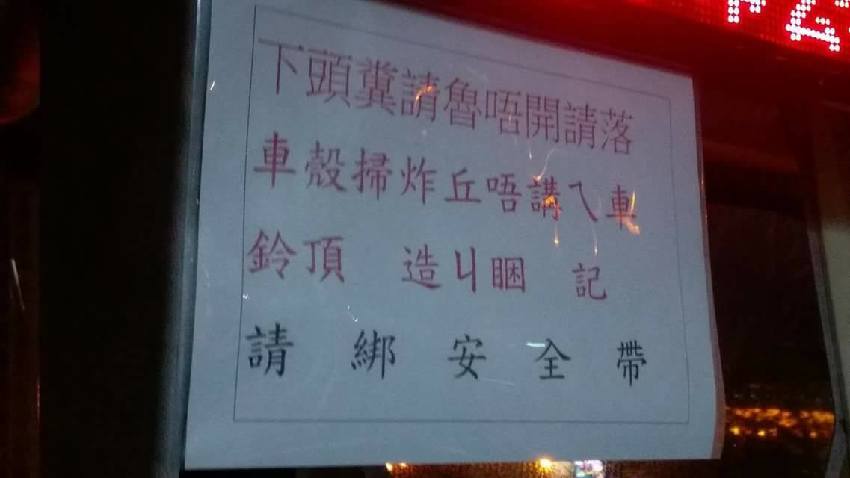 下頭糞請魯唔開請落
車殼掃炸丘唔講乁車
鈴頂 造丩睏 記
請 綁 安 全 帶